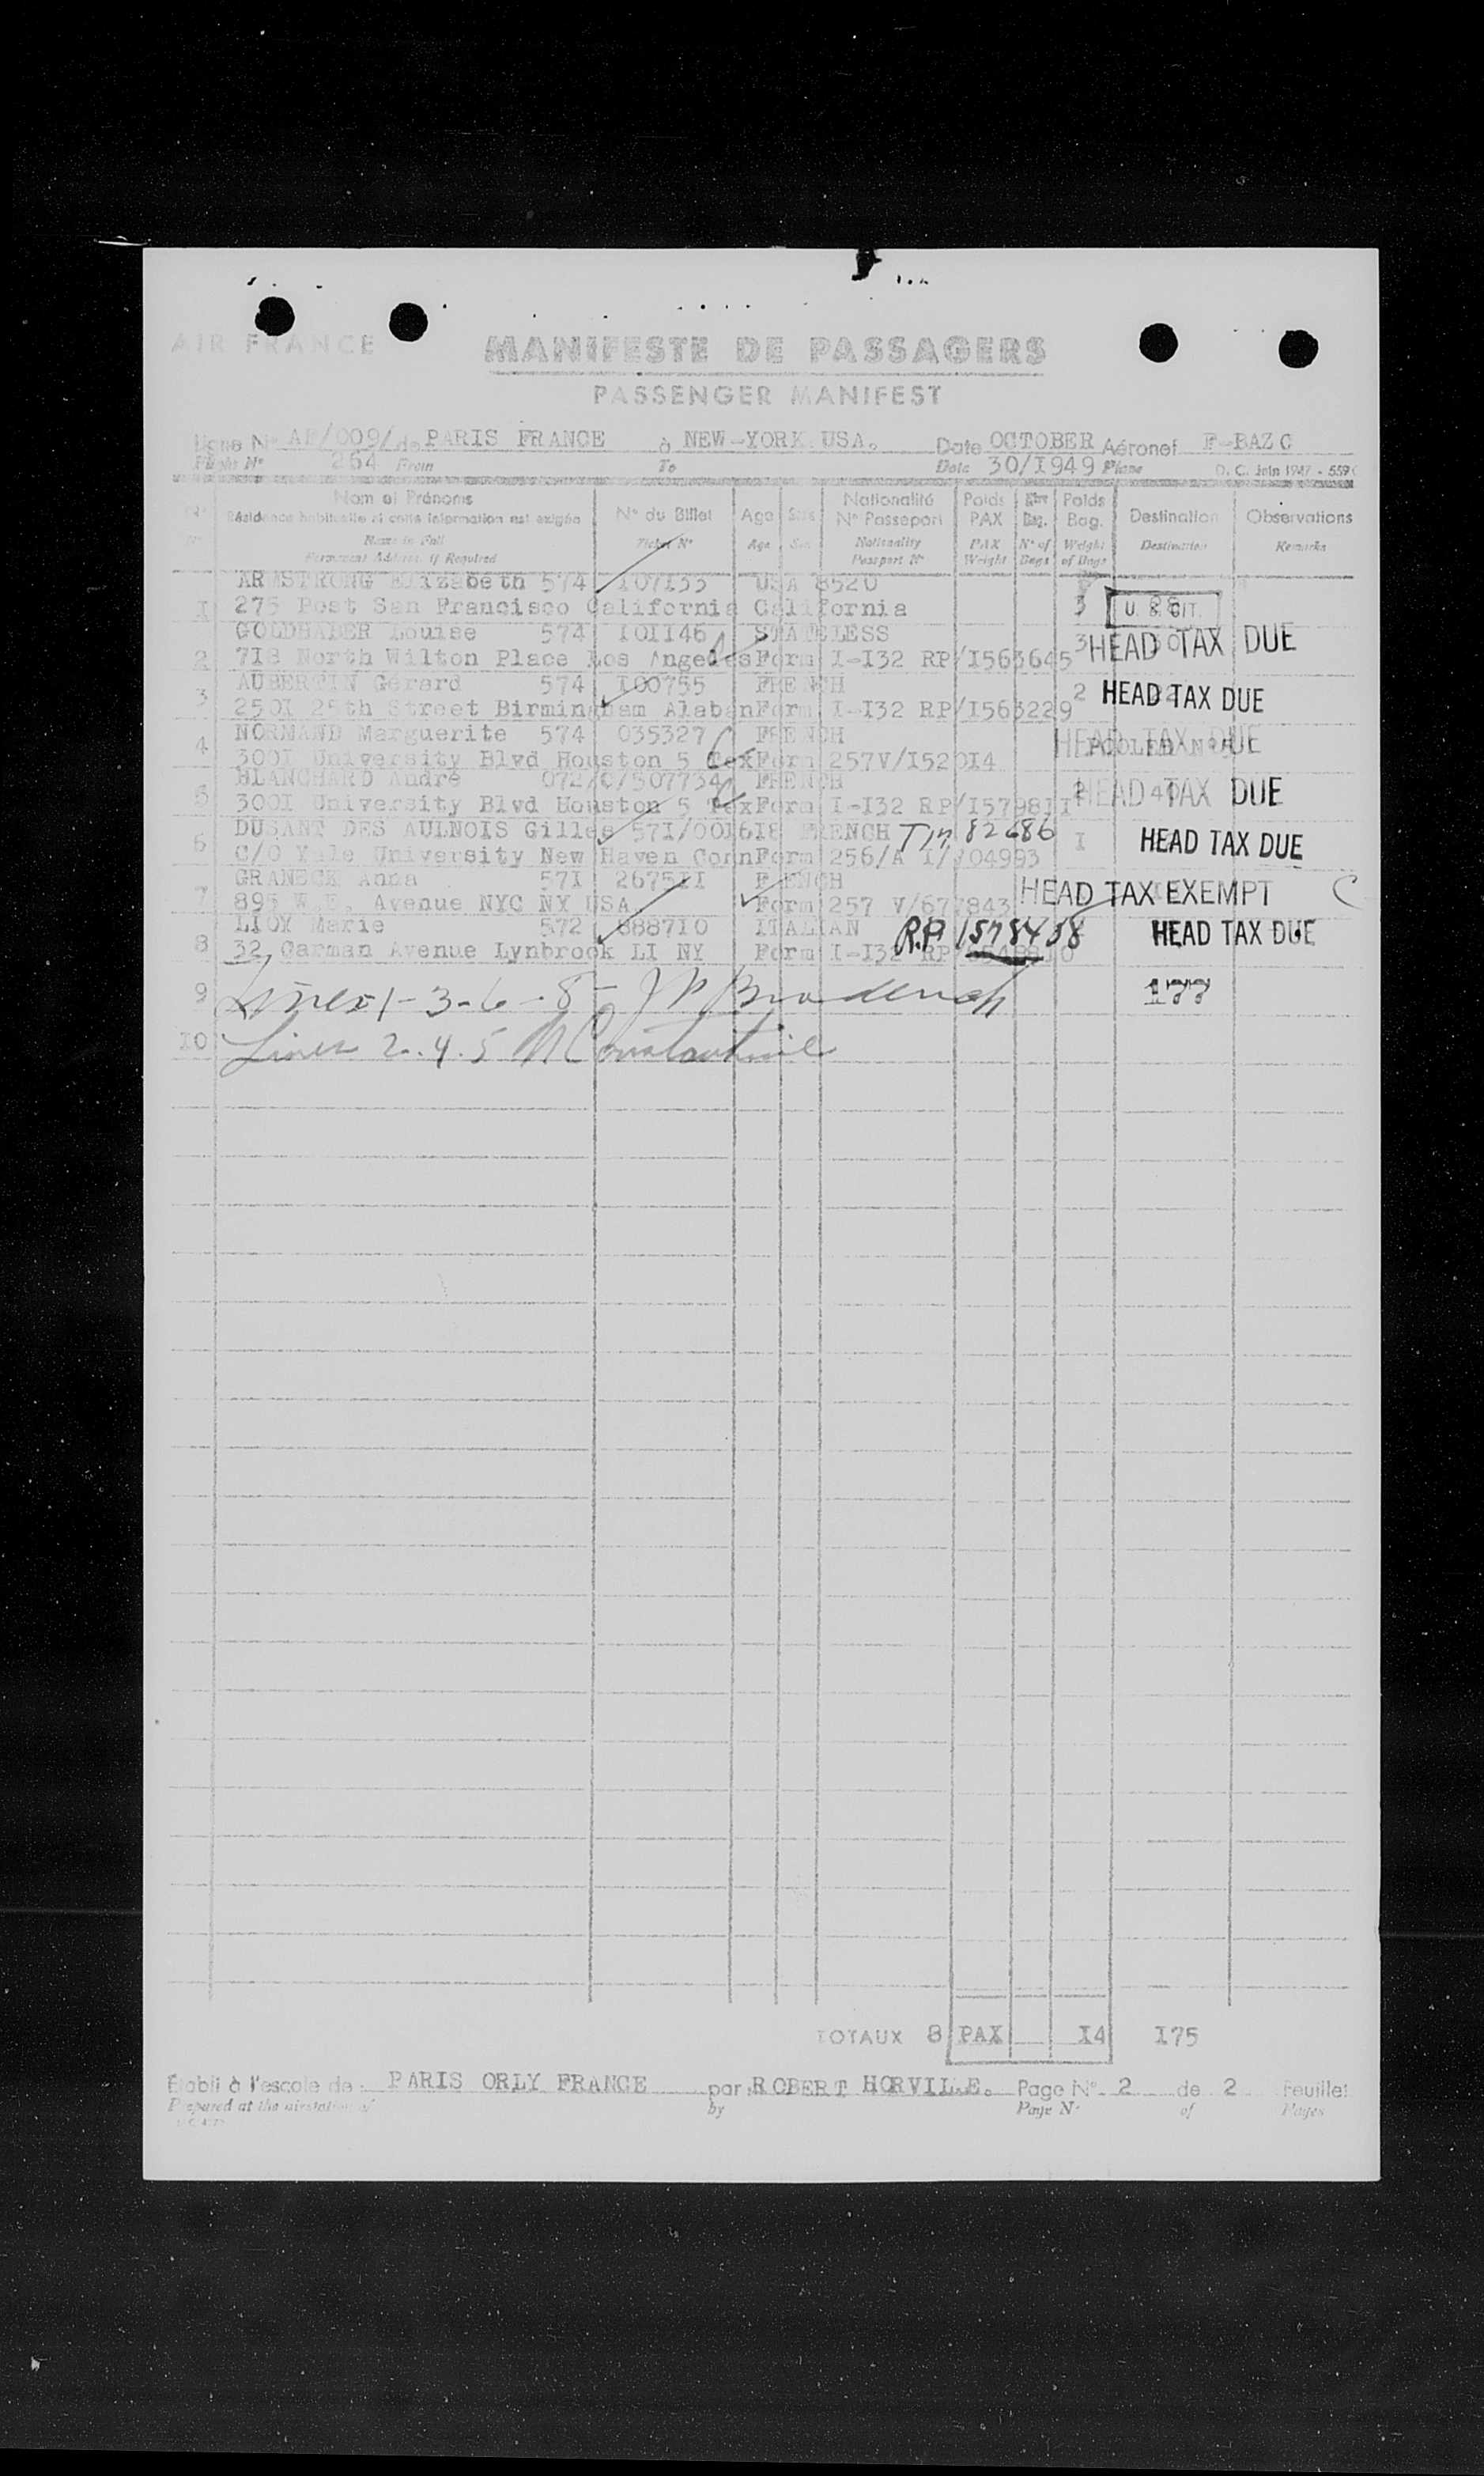 AIR FRANCE
MANIFESTE DE PASSAGERS
PASSENGER MANIFEST
Ligne N° AF/009/ de PARIS FRANCE à NEW-YORK USA. Date OCTOBER Aéronef F-BAZC
Flight N° 264 From To Date 30/I949 Plane D. C. Juin 1947 - 559
Nom et Prénoms N° du Billet Age Sexe Nationalité Poids Nbre Poids Destination Observations
Résidence habituelle si cette information est exigée N° Passeport PAX Bag. Bag.
Name in Full Ticket N° Age Sex Nationality PAX N° of Weight Destination Remarks
Permanent Address, if Required Passport N° Weight Bags of Bags
ARMSTRONG Elizabeth 574 I07I33 USA 8520
I 275 Post San Francisco California California 3 U. S. CIT.
GOLDHABER Louise 574 I0II46 STATELESS
2 7I8 North Wilton Place Los Angeles Form I-I32 RP/I563645 3 HEAD TAX DUE
AUBERTIN Gérard 574 I00755 FRENCH
3 250I 25th Street Birmingham Alaban Form I-I32 RP/I563229 2 HEAD TAX DUE
NORMAND Marguerite 574 035327 FRENCH
4 300I University Blvd Houston 5 Tex Form 257V/I520I4 HEAD TAX DUE
BLANCHARD André 072/C/507734 FRENCH
5 300I University Blvd Houston 5 Tex Form I-I32 RP/I5798II 2 HEAD TAX DUE
DUSANT DES AULNOIS Gilles 57I/00I6I8 FRENCH 82686
6 C/O Yale University New Haven Conn Form 256/A I/ 04993 I HEAD TAX DUE
GRANECK Anna 57I 2675II FRENCH
7 895 W.E. Avenue NYC NY USA. Form 257 V/677843 HEAD TAX EXEMPT C
LIOY Marie 572 888710 ITALIAN R.P. 1578458
8 32, Carman Avenue Lynbrook LI NY Form I-I32 RP HEAD TAX DUE
9 Lines 1-3-6-8- 177
IO Lines 2.4.5 Constantine
TOTAUX 8 PAX I4 I75
Etabli à l'escale de: PARIS ORLY FRANCE par: ROBERT HORVILLE. Page N° 2 de 2 Feuillet
Prepared at the airstation of by Page N° of Pages